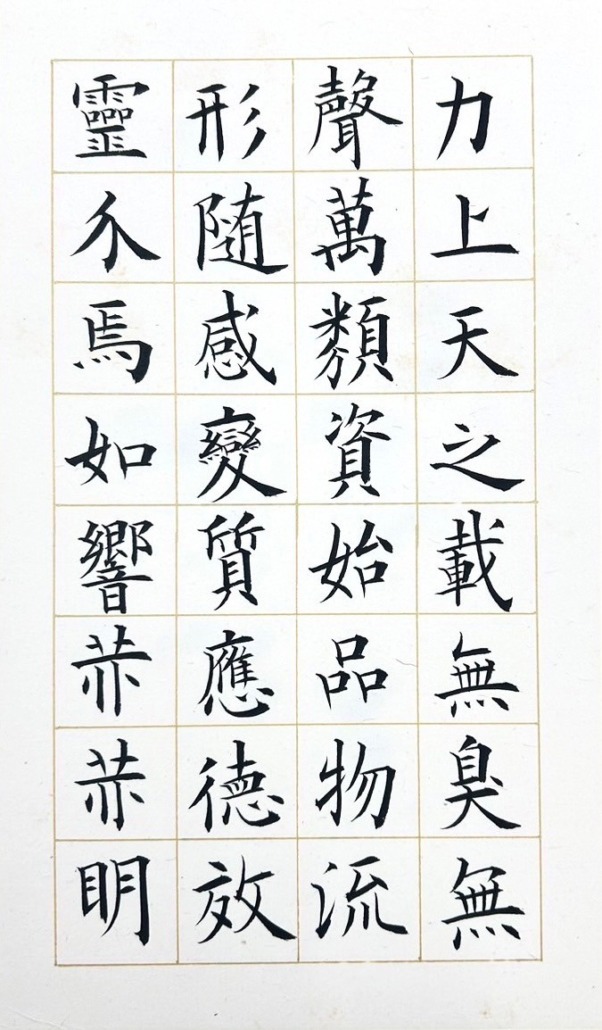 力上天之載無臭無
聲萬類資始品物流
形随感變質應德效
靈介焉如響赫赫明